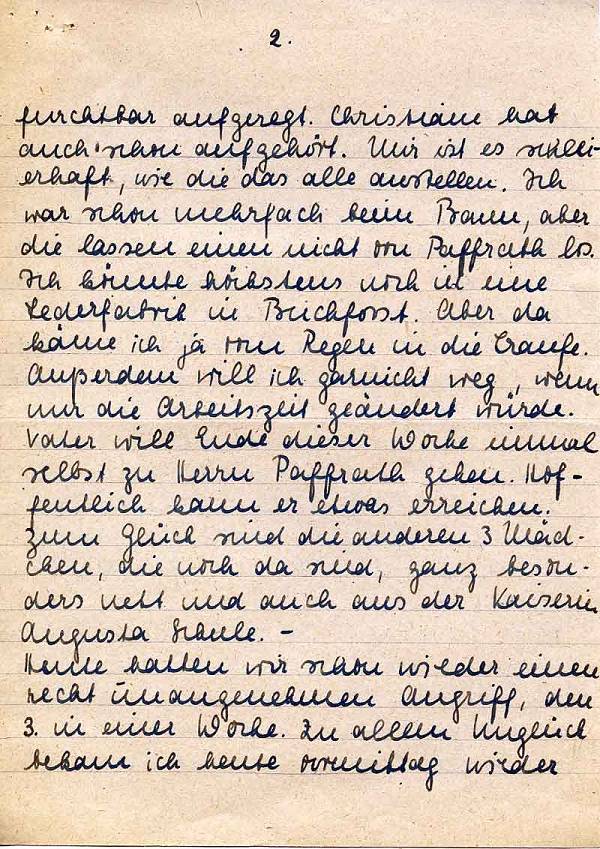 2.
furchtbar aufgeregt. Christiane hat
auch schon aufgehört. Mir ist es schlei-
erhaft, wie die das alle anstellen. Ich
war schon mehrfach beim Bann, aber
die lassen einen nicht von Paffrath los.
Ich könnte höchstens noch in eine
Lederfabrik in Buchforst. Aber da
käme ich ja vom Regen in die Traufe.
Außerdem will ich garnicht weg, wenn
nur die Arbeitszeit geändert würde.
Vater will Ende dieser Woche einmal
selbst zu Herrn Paffrath gehen. Hof-
fentlich kann er etwas erreichen.
Zum Glück sind die anderen 3 Mäd-
chen, die noch da sind, ganz beson-
ders nett und auch aus der Kaiserin
Augusta Schule. –
Heute hatten wir schon wieder einen
recht unangenehmen Angriff, den
3. in einer Woche. Zu allem Unglück
bekam ich heute vormittag wieder